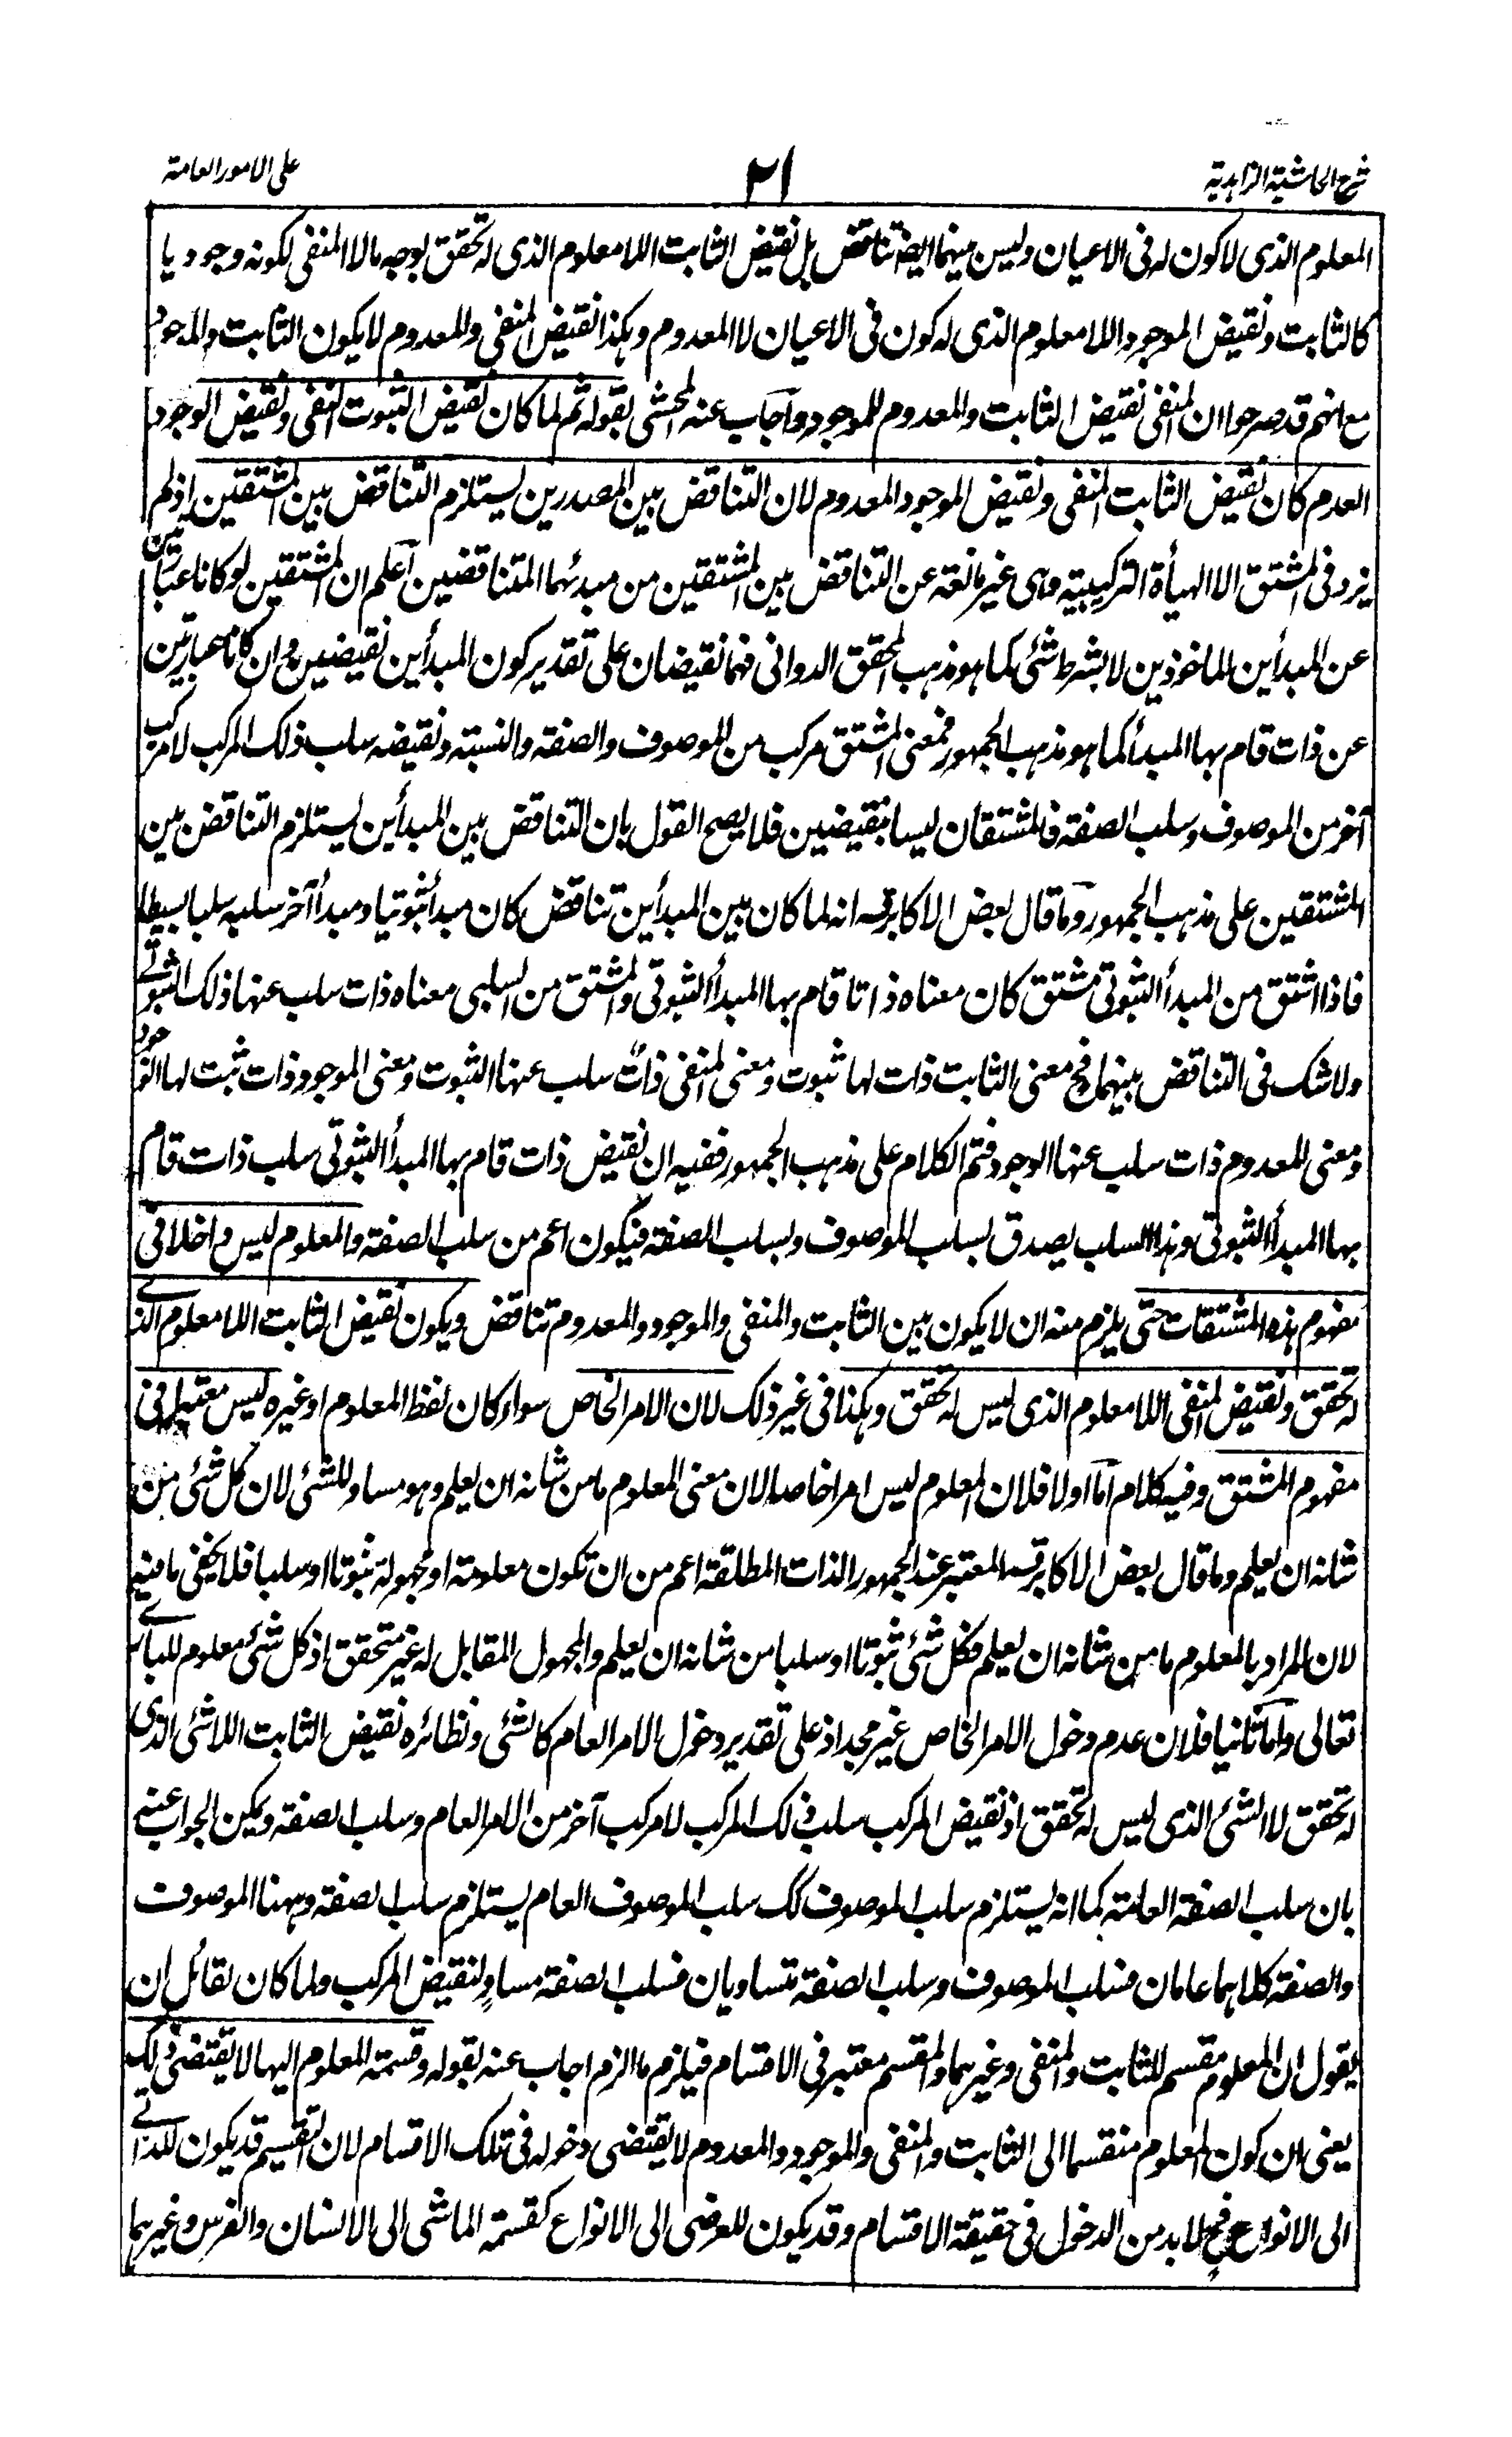 شرح الحاشية الزاهدية
٢١
على الامور العامة
المعلوم الذى لا كون له فى الاعيان وليس بينهما ايضا تناقض بل نقيض الثابت اللا معلوم الذى له تحقق بوجه ما لا المنفى لكونه وجوديا
كالثابت ونقيض الموجود اللا معلوم الذى له كون فى الاعيان لا المعدوم وهكذا نقيض المنفى والمعدوم لا يكون الثابت والموجود
مع انهم قد صرحوا ان المنفى نقيض الثابت والمعدوم للموجود واجاب عنه المحشى بقوله ثم لما كان نقيض الثبوت النفى ونقيض الوجود
العدم كان نقيض الثابت المنفى ونقيض الموجود المعدوم لان التناقض بين المصدرين يستلزم التناقض بين المشتقين اذ لم
يزد فى المشتق الا الهيأة التركيبية وهى غير مانعة عن التناقض بين المشتقين من مبدئهما المتناقضين اعلم ان المشتقين لو كانا عبارتين
عن المبدأين الماخوذين لا بشرط شئ كما هو مذهب المحقق الدوانى فهما نقيضان على تقدير كون المبدأين نقيضين وان كانا عبارتين
عن ذات قام بها المبدأ كما هو مذهب الجمهور فمعنى المشتق مركب من الموصوف والصفة والنسبة ونقيضه سلب ذلك المركب لا مركب
آخر من الموصوف وسلب الصفة فالمشتقان ليسا بنقيضين فلا يصح القول بان التناقض بين المبدأين يستلزم التناقض بين
المشتقين على مذهب الجمهور وما قال بعض الاكابر قدس سره انه لما كان بين المبدأين تناقض كان مبدأ ثبوتيا ومبدأ آخر سلبه سلبا بسيطا
فاذا اشتق من المبدأ الثبوتى مشتق كان معناه ذاتا قام بها المبدأ الثبوتى والمشتق من السلبى معناه ذات سلب عنها ذلك الثبوتى
ولا شك فى التناقض بينهما فح معنى الثابت ذات لها ثبوت ومعنى المنفى ذات سلب عنها الثبوت ومعنى الموجود ذات ثبت لها الوجود
ومعنى المعدوم ذات سلب عنها الوجود فتم الكلام على مذهب الجمهور ففيه ان نقيض ذات قام بها المبدأ الثبوتى سلب ذات قام
بها المبدأ الثبوتى وهذا السلب يصدق بسلب الموصوف وبسلب الصفة فيكون اعم من سلب الصفة والمعلوم ليس داخلا فى
مفهوم هذه المشتقات حتى يلزم منه ان لا يكون بين الثابت والمنفى والموجود والمعدوم تناقض ويكون نقيض الثابت اللا معلوم الذى
له تحقق ونقيض المنفى اللا معلوم الذى ليس له تحقق وهكذا فى غير ذلك لان الامر الخاص سواء كان لفظ المعلوم او غيره ليس معتبرا فى
مفهوم المشتق وفيه كلام اما اولا فلان المعلوم ليس امرا خاصا لان معنى المعلوم ما من شانه ان يعلم وهو مساو للشئ لان كل شئ من
شانه ان يعلم وما قال بعض الاكابر قدس سره المعتبر عند الجمهور الذات المطلقة اعم من ان تكون معلومة او مجهولة ثبوتا او سلبا فلا يخفى ما فيه
لان المراد بالمعلوم ما من شانه ان يعلم فكل شئ ثبوتا او سلبا من شانه ان يعلم والمجهول المقابل له غير متحقق اذ كل شئ معلوم للبارى
تعالى واما ثانيا فلان عدم دخول الامر الخاص غير مجد اذ على تقدير دخول الامر العام كالشئ ونظائره نقيض الثابت اللا شئ الذى
له تحقق لا الشئ الذى ليس له تحقق اذ نقيض المركب سلب ذلك المركب لا مركب آخر من الامر العام وسلب الصفة ويمكن الجواب عنه
بان سلب الصفة العامة كما انه يستلزم سلب الموصوف كك سلب الموصوف العام يستلزم سلب الصفة وههنا الموصوف
والصفة كلاهما عامان فسلب الموصوف وسلب الصفة متساويان فسلب الصفة مساو لنقيض المركب ولما كان لقائل ان
يقول ان المعلوم مقسم للثابت والمنفى وغيرهما والمقسم معتبر فى الاقسام فيلزم ما الزم اجاب عنه بقوله وقسمة المعلوم اليها لا يقتضى ذلك
يعنى ان كون المعلوم منقسما الى الثابت والمنفى والموجود والمعدوم لا يقتضى دخوله فى تلك الاقسام لان التقسيم قد يكون للذاتى
الى الانواع فح لا بد من الدخول فى حقيقة الاقسام وقد يكون للعرضى الى الانواع كقسمة الماشى الى الانسان والفرس وغيرهما